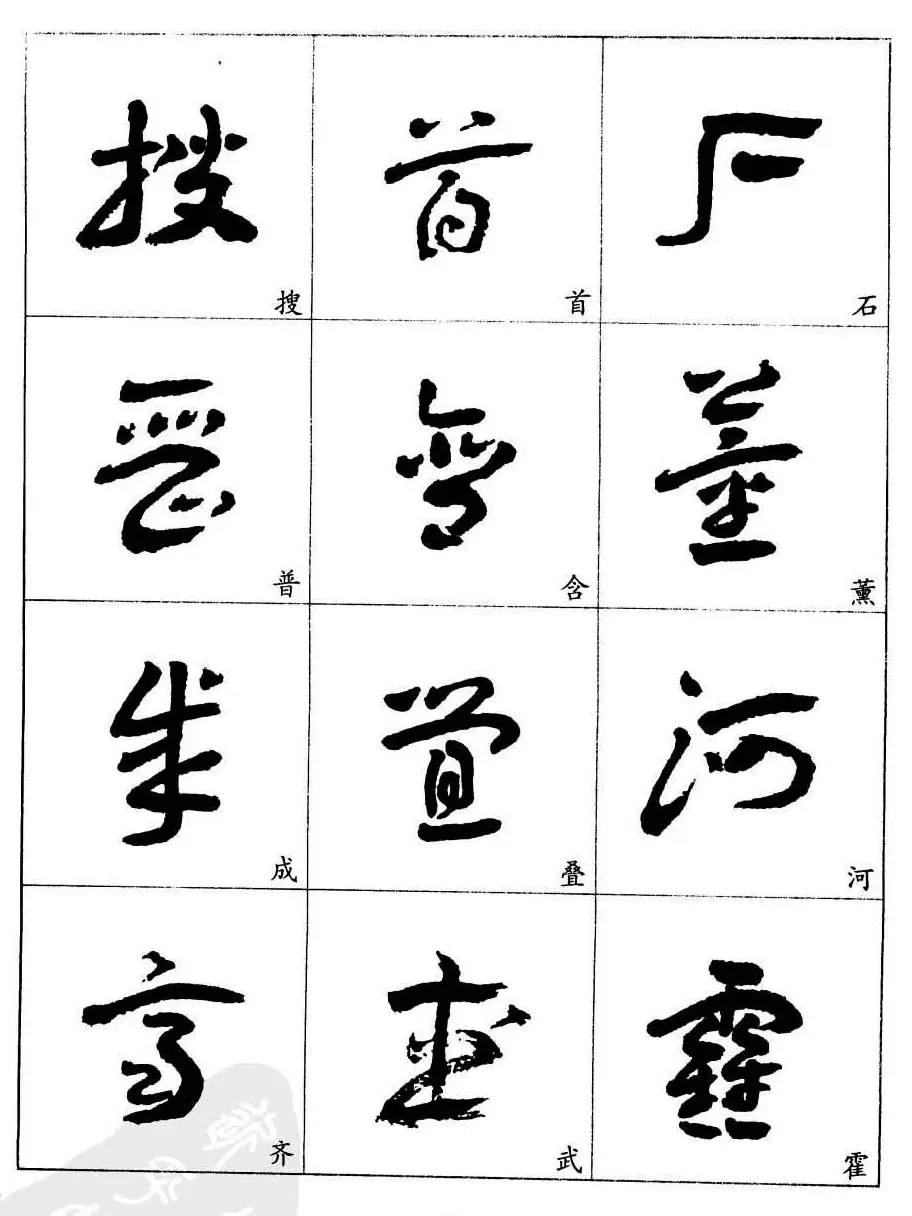 搜 首 石
普 含 薰
成 叠 河
齐 武 霍